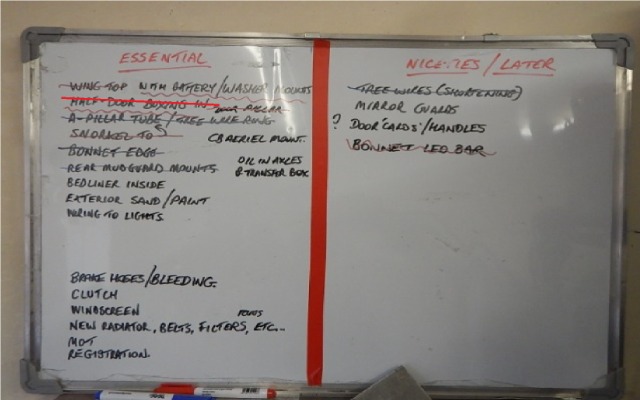 ESSENTIAL
WING TOP WITH BATTERY/WASHER MOUNTS
HALF-DOOR BOXING IN
A-PILLAR TUBE/TREE WIRE RING
SNORKEL TO
CB AERIEL MOUNT.
BONNET EDGE
REAR MUDGUARD MOUNTS
OIL IN AXLES
& TRANSFER BOX
BEDLINER INSIDE
EXTERIOR SAND/PAINT
WIRING TO LIGHTS
BRAKE HOSES/BLEEDING.
CLUTCH
WINDSCREEN
NEW RADIATOR, BELTS, FILTERS, ETC...
MOT
REGISTRATION.
NICE-TIES/LATER
TREE WIRES (SHORTENING)
MIRROR GUARDS
? DOOR 'CARDS'/HANDLES
BONNET LED BAR